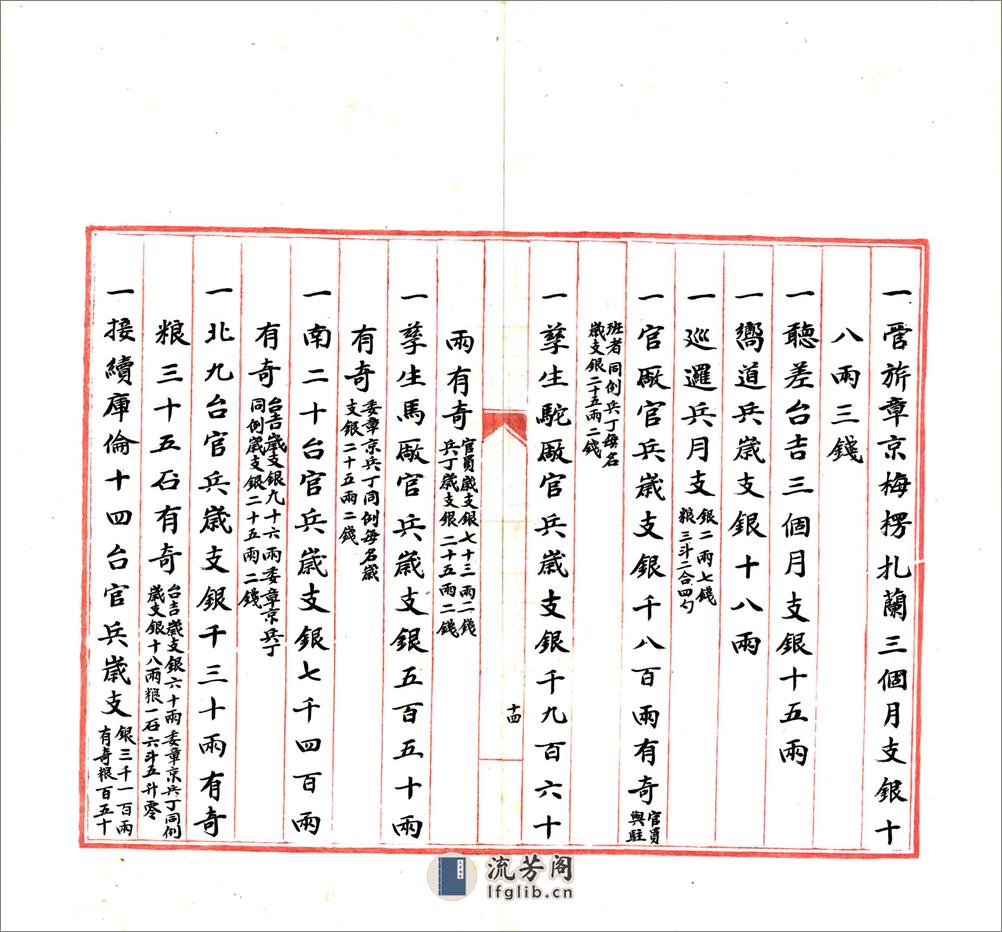 一管旂章京梅楞扎蘭三個月支銀十
八兩三錢
一聽差台吉三個月支銀十五兩
一嚮道兵歲支銀十八兩
一巡邏兵月支銀二兩七錢
粮三斗二合四勺
一官厰官兵歲支銀千八百兩有奇官員
與駐
班者同例兵丁每名
歲支銀二十五兩二錢
一孳生駝厰官兵歲支銀千九百六十
兩有奇官員歲支銀七十三兩二錢
兵丁歲支銀二十五兩二錢
一孳生馬厰官兵歲支銀五百五十兩
有奇委章京兵丁同例每名歲
支銀二十五兩二錢
一南二十台官兵歲支銀七千四百兩
有奇台吉歲支銀九十六兩委章京兵丁
同例歲支銀二十五兩二錢
一北九台官兵歲支銀千三十兩有奇
粮三十五石有奇台吉歲支銀六十兩委章京兵丁同例
歲支銀十八兩粮一石六斗五升零
一接續庫倫十四台官兵歲支銀三千一百兩
有奇粮百五十
十四
流芳阁
lfglib.cn